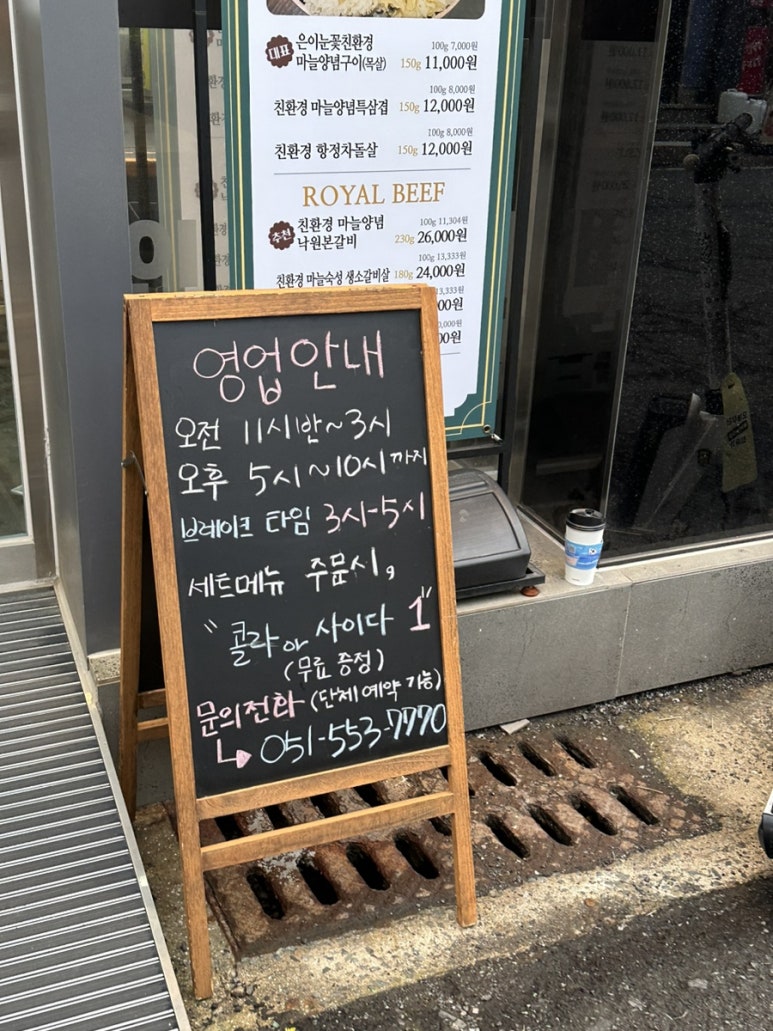 대표 은이눈꽃친환경 100g 7,000원
마늘양념구이(목살) 150g 11,000원
100g 8,000원
친환경 마늘양념특삼겹 150g 12,000원
100g 8,000원
친환경 항정차돌살 150g 12,000원
ROYAL BEEF
추천 친환경 마늘양념 100g 11,304원
낙원본갈비 230g 26,000원
100g 13,333원
친환경 마늘숙성 생소갈비살 180g 24,000원
영업안내
오전 11시반~3시
오후 5시~10시까지
브레이크 타임 3시-5시
세트메뉴 주문시,
"콜라 or 사이다 1"
(무료 증정)
문의전화 (단체 예약 가능)
051-553-7770